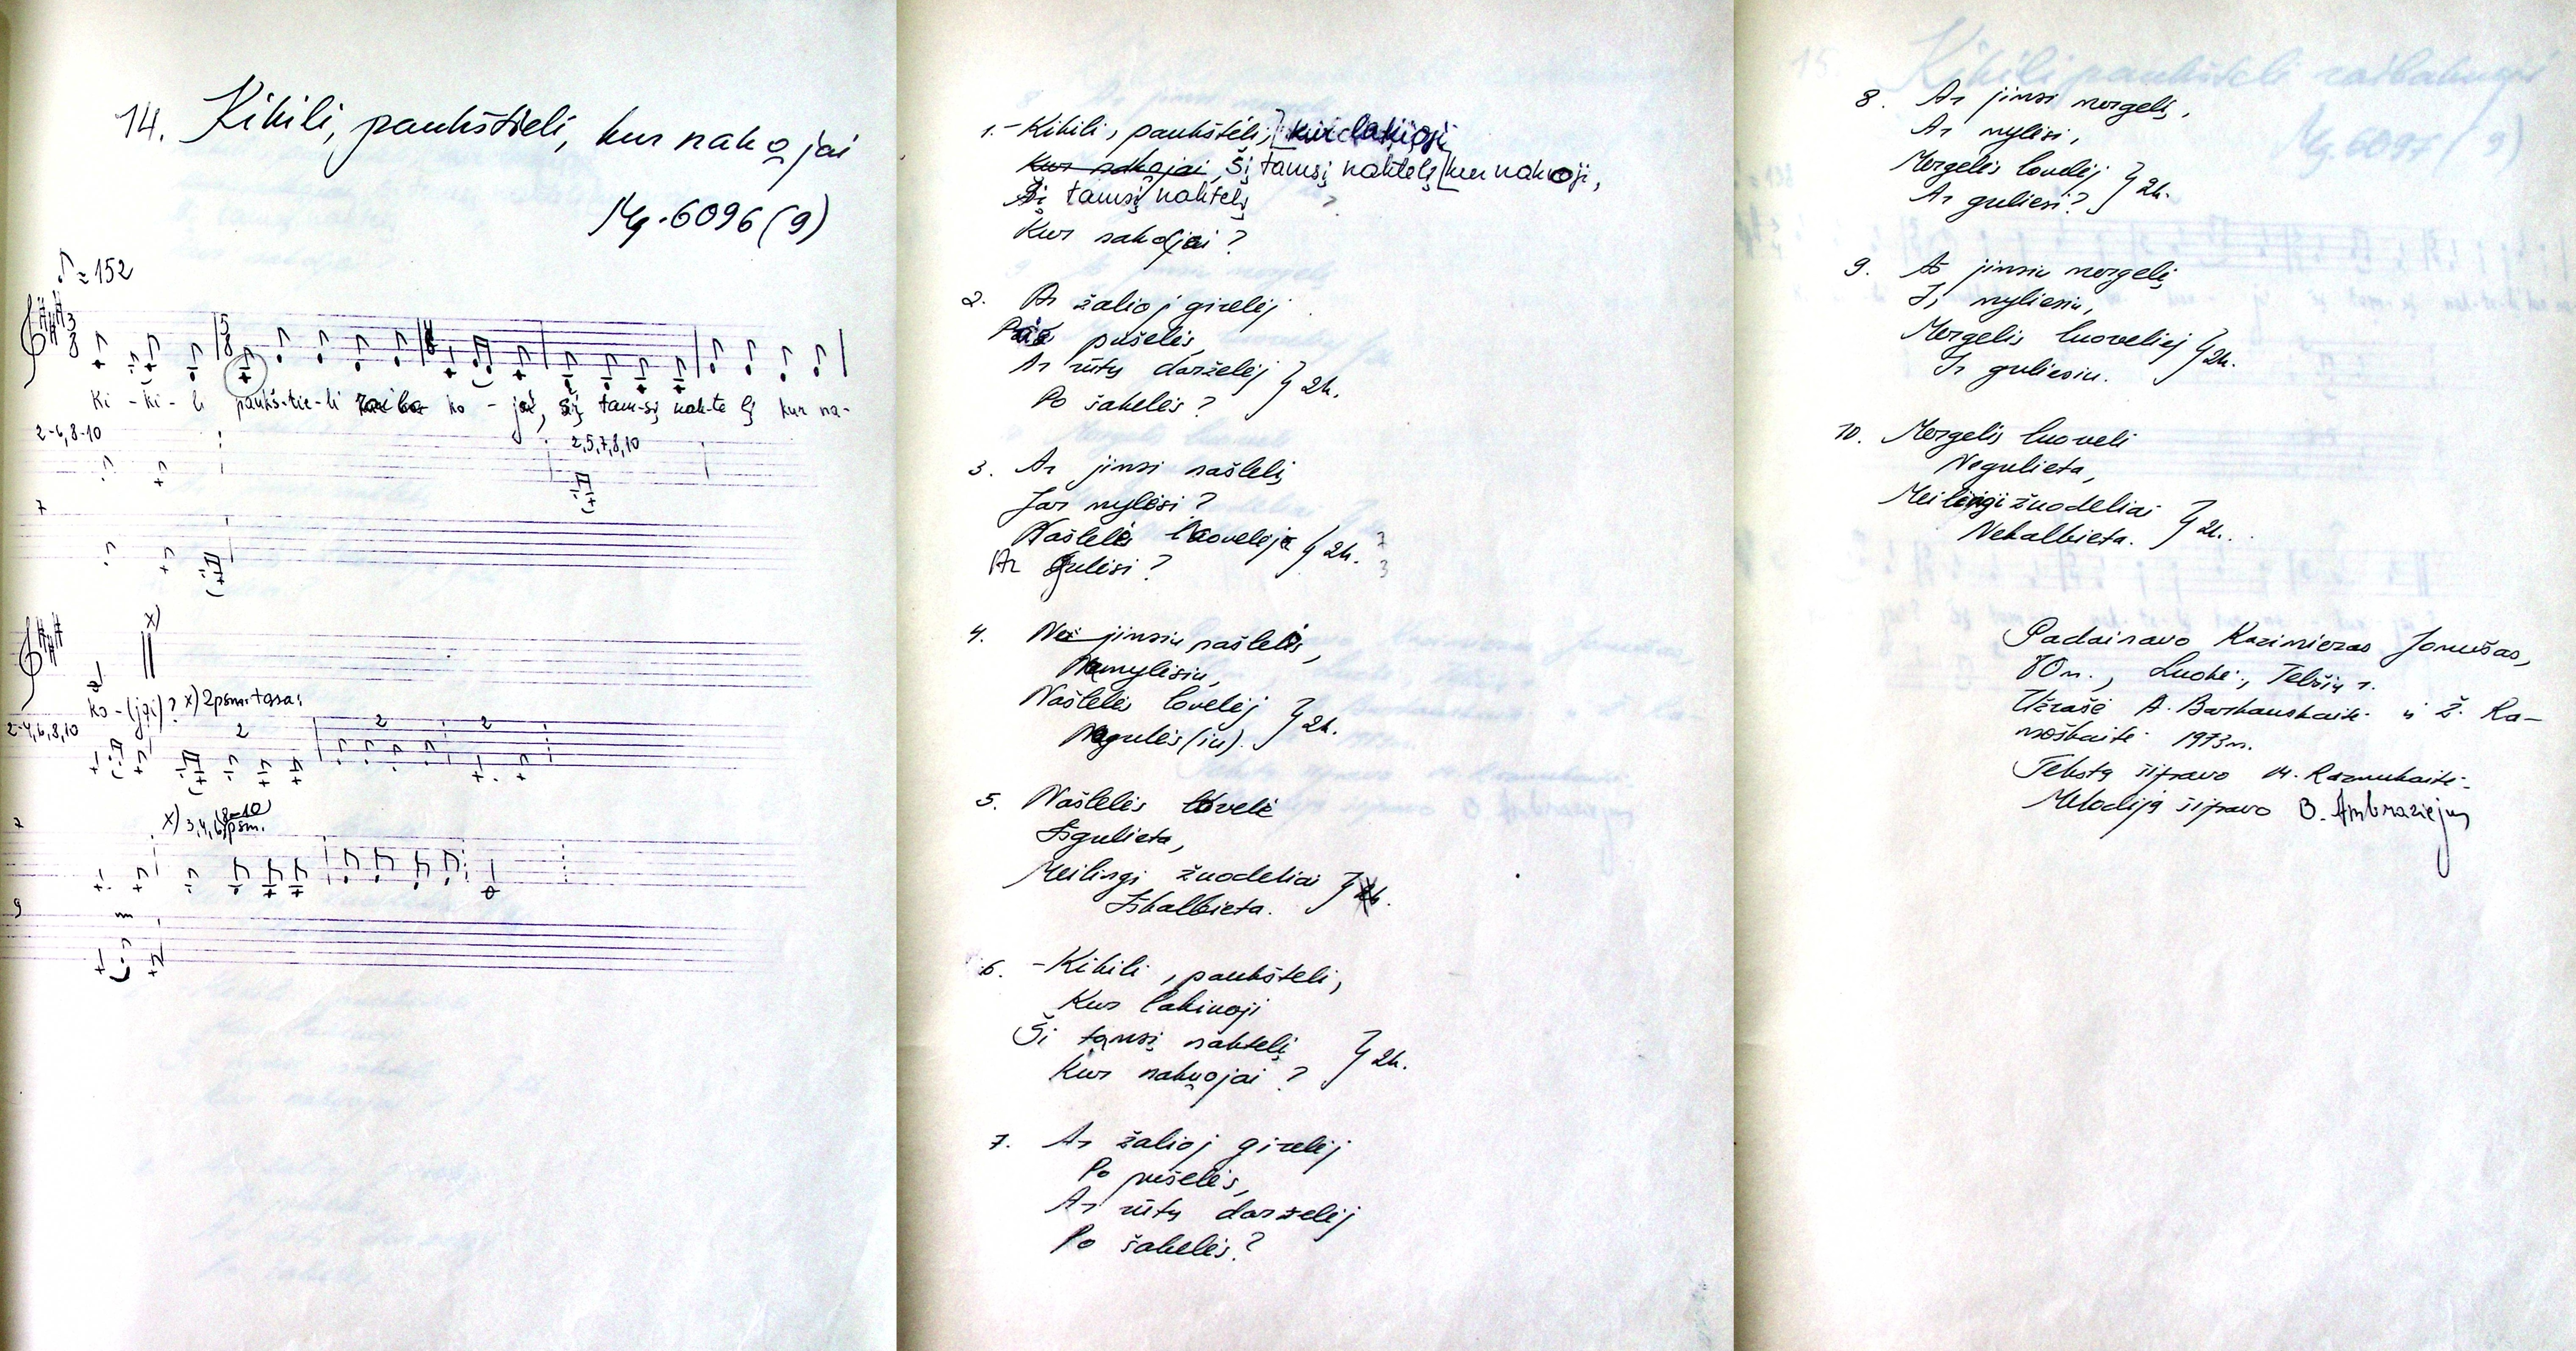 14. Kikili, paukštieli, kur nakojai
Mg. 6096 (9)
♪ = 152
Ki - ki - li paukš-tie-li ko - jai, šį tam-sį nak-te lį kur na-
2-6, 8-10
2,5,7,8,10
7
x)
ko-(jai)? x) 2 psm. tęsa:
2-4, 6, 8, 10
2
2
2
7
x) 3,4,6,8-10 psm.
9
1. - Kikili, paukšteli, kur lakiuoji
Kur nakojai, Šį tamsį naktelį kur nakuoji,
Šį tamsį naktelį
Kur nakojai?
2. Ar žalioj girelėj
pušelės,
Ar rūtų darželėj
Po šakelės? } 2k.
3. Ar jimsi našlelį,
Jar mylėsi?
Našlelės } 2k.
Ar gulėsi?
4. Nei jimsiu našlelės,
Nemylėsiu,
Našlelės lovelėj } 2k.
Negulės(iu).
5. Našlelės lovelė
Išgulieta,
Meilingi žuodeliai } 2k.
Iškalbieta.
6. - Kikili, paukšteli,
Kur lakiuoji
Ši tamsį naktelį } 2k.
Kur nakuojai?
7. Ar žalioj girelėj
Po pušelės,
Ar rūtų darželėj
Po šakelės?
8. Ar jimsi mergelį,
Ar mylėsi,
Mergelės louvelėj } 2k.
Ar guliesi?
9. Aš jimsiu mergelį
Ir myliesiu,
Mergelis luoveliej } 2k.
Ir guliesiu.
10. Mergelis luoveli
Negulieta,
Meilingi žuodeliai } 2k.
Nekalbieta.
Padainavo Kazimieras Jonušas,
80 m., Luokė, Telšių r.
Užrašė A. Barkauskaitė ir Ž. Ra-
moškaitė 1973 m.
Tekstą šifravo M. Razmukaitė
Melodiją šifravo B. Ambraziejus